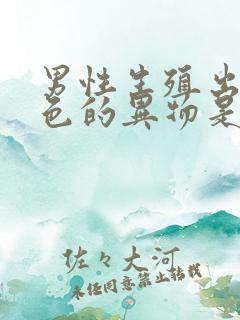 男性生殖出
色的异物是
佐々大河
未经同意禁止转载